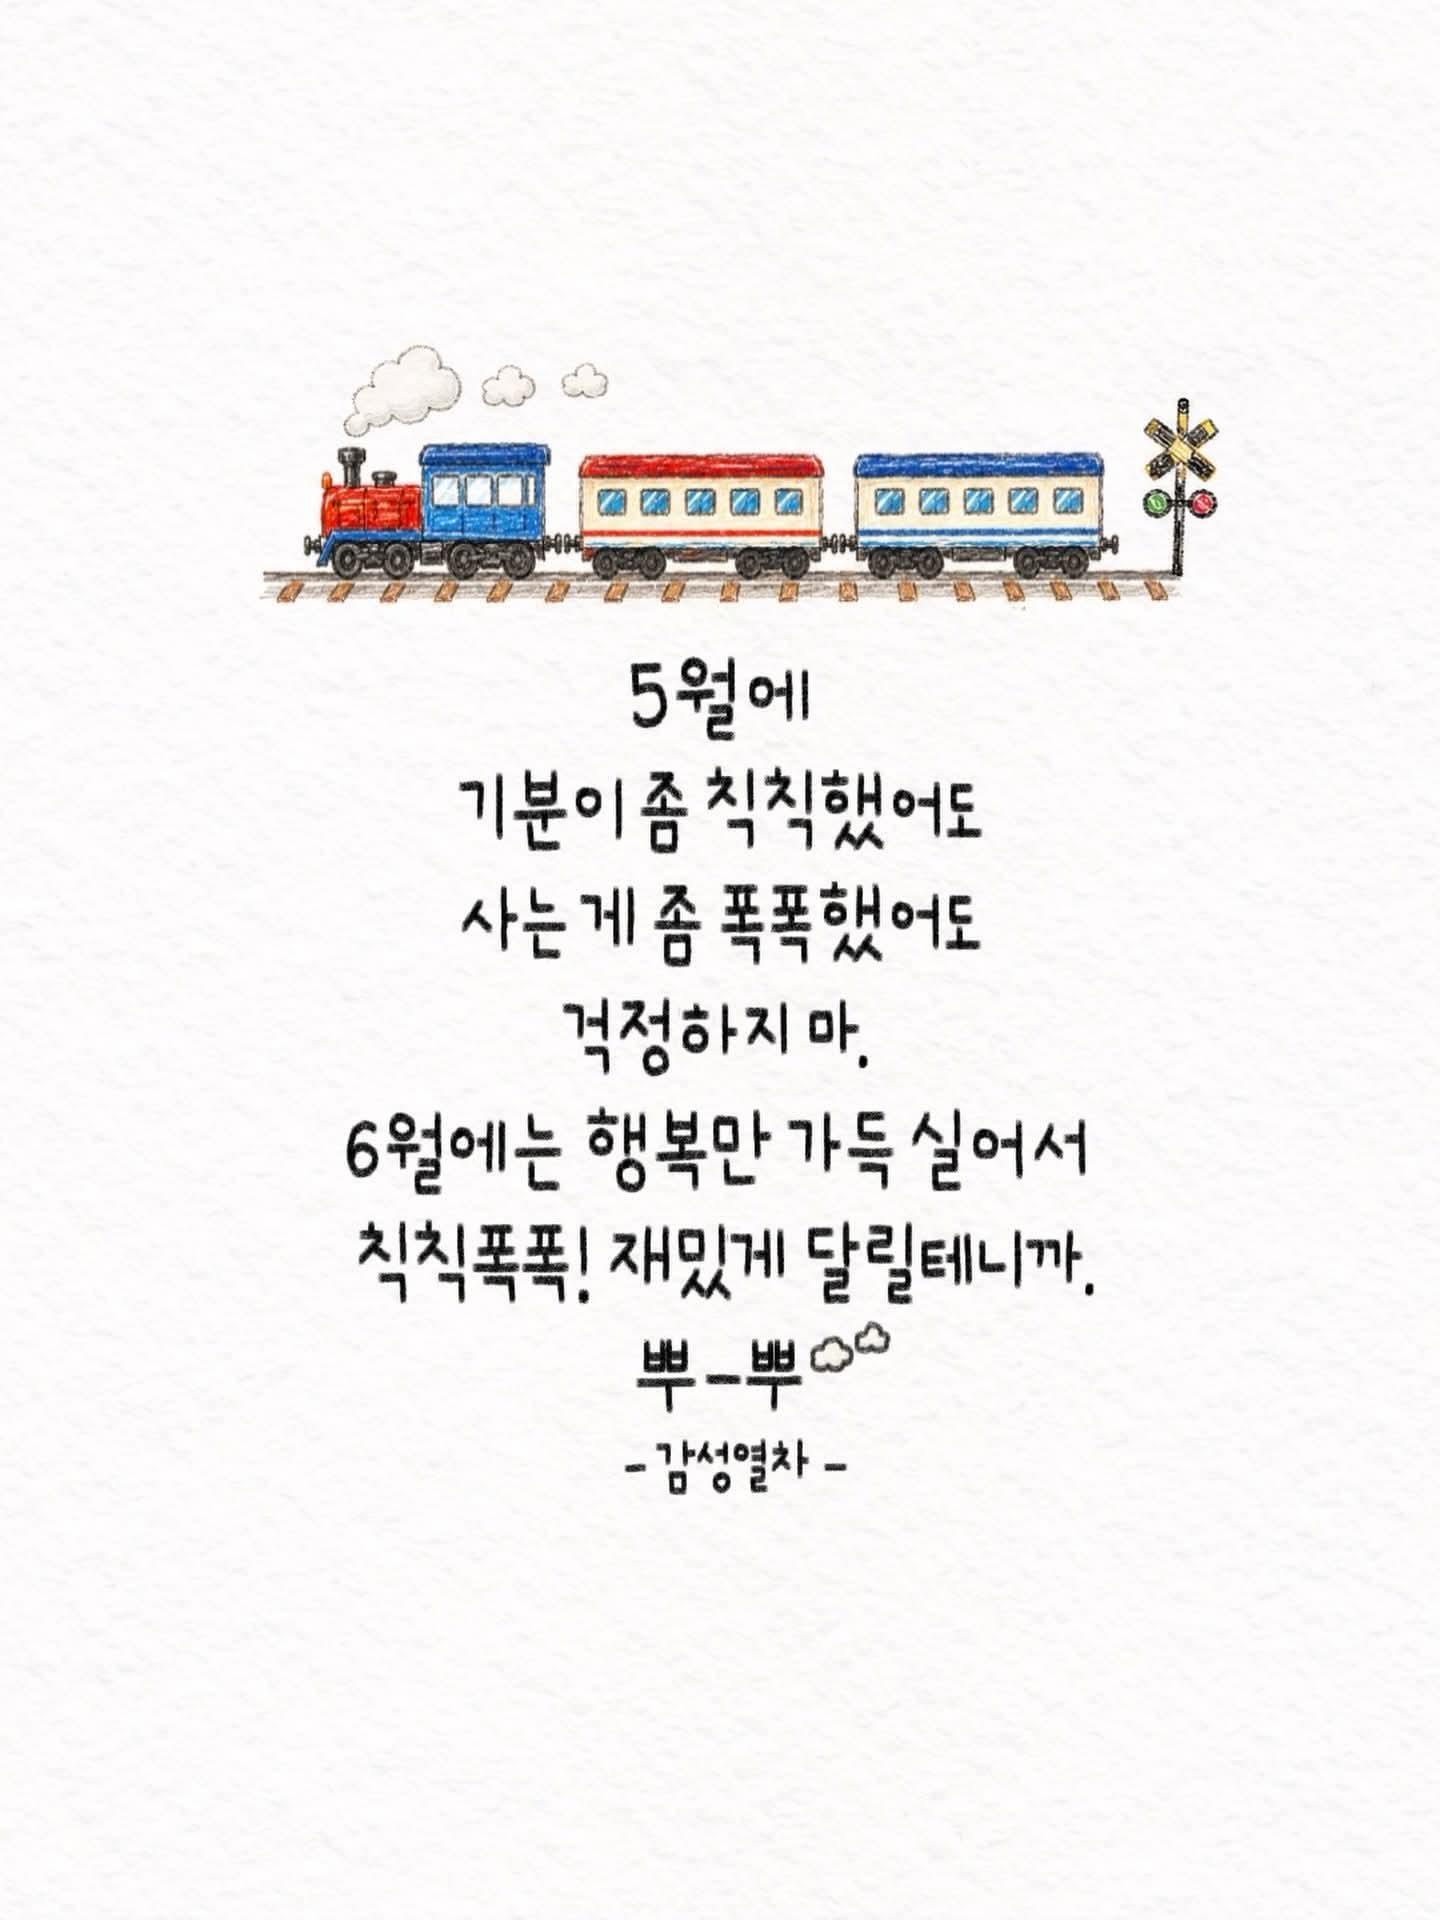 5월에
기분이 좀 칙칙했어도
사는 게 좀 폭폭했어도
걱정하지 마.
6월에는 행복만 가득 실어서
칙칙폭폭! 재밌게 달릴테니까.
뿌-뿌
- 감성열차 -